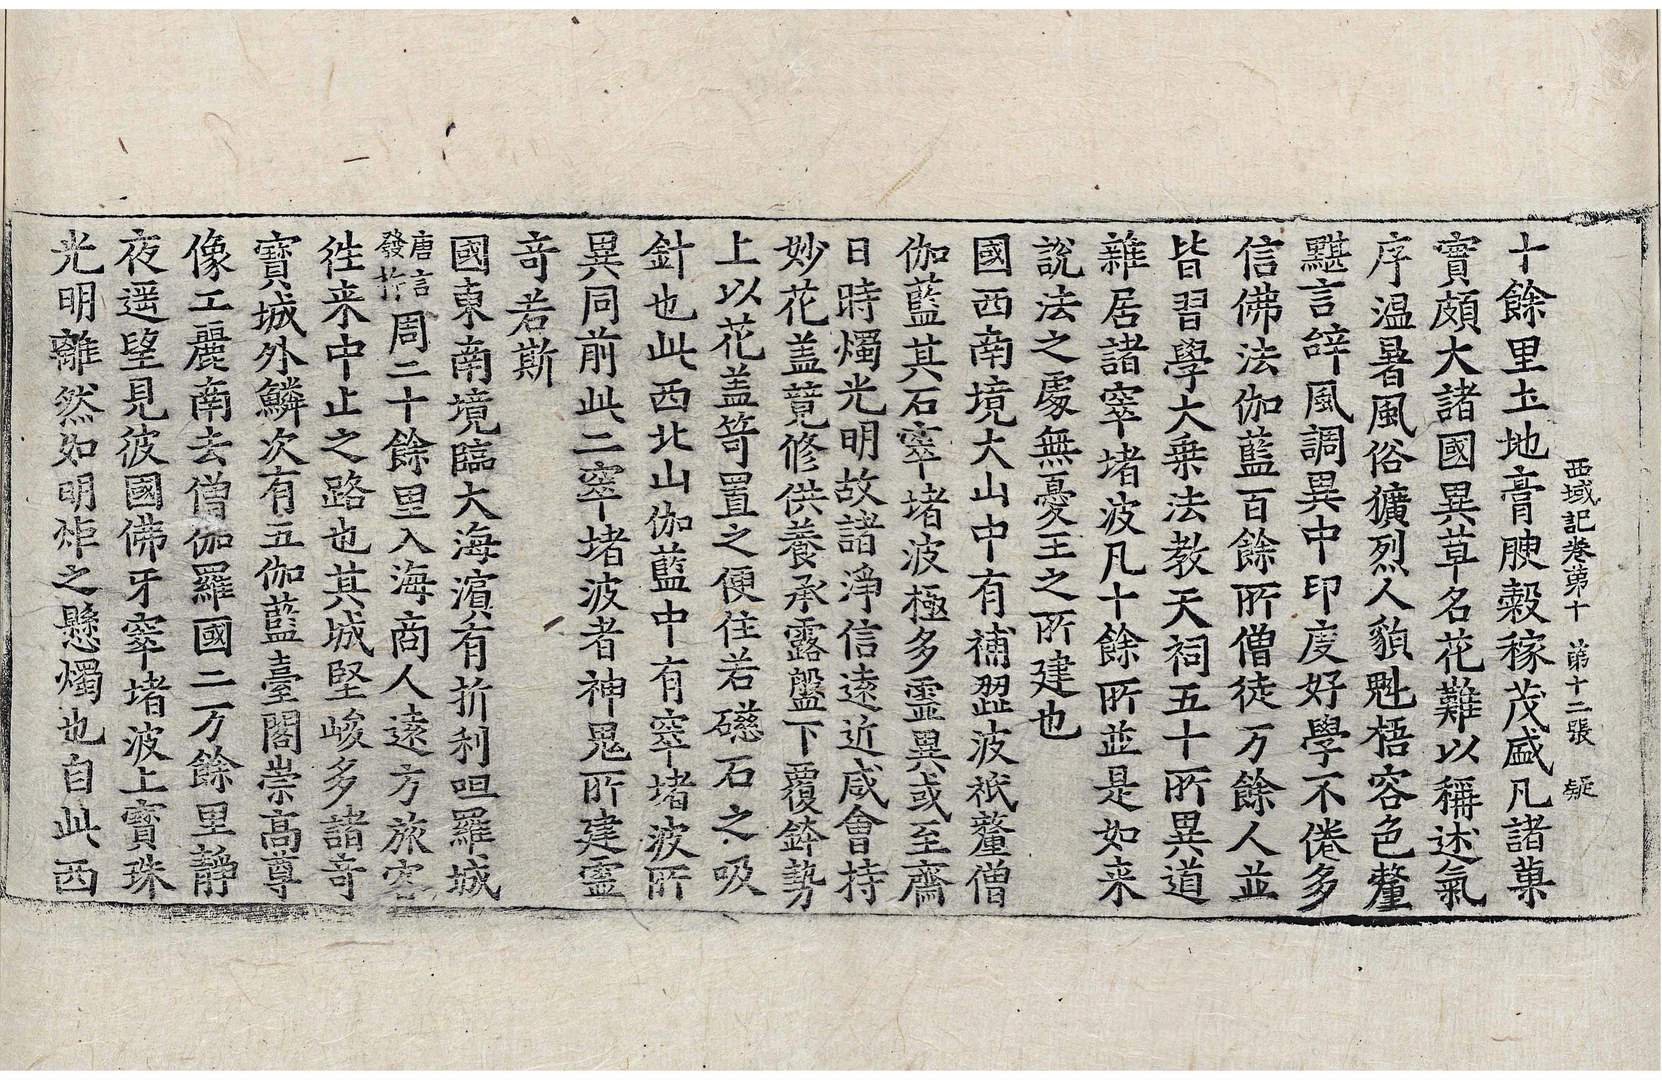 西域記卷第十 第十二張 疑
十餘里土地膏腴穀稼茂盛凡諸菓
實頗大諸國異草名花難以稱述氣
序温暑風俗獷烈人貌魁梧容色黧
黮言辝風調異中印度好學不倦多
信佛法伽藍百餘所僧徒万餘人並
皆習學大乗法教天祠五十所異道
雜居諸窣堵波凡十餘所並是如来
說法之處無憂王之所建也
國西南境大山中有補澀波祇釐僧
伽藍其石窣堵波極多靈異或至齋
日時燭光明故諸淨信遠近咸會持
妙花盖競修供養承露盤下覆鉢勢
上以花盖笴置之便住若礠石之吸
針也此西北山伽藍中有窣堵波所
異同前此二窣堵波者神鬼所建靈
竒若斯
國東南境臨大海濱有折利呾羅城
唐言發行周二十餘里入海商人遠方旅客
徃来中止之路也其城堅峻多諸竒
寶城外鱗次有五伽藍臺閣崇高尊
像工麗南去僧伽羅國二万餘里靜
夜遥望見彼國佛牙窣堵波上寶珠
光明離然如明炬之懸燭也自此西